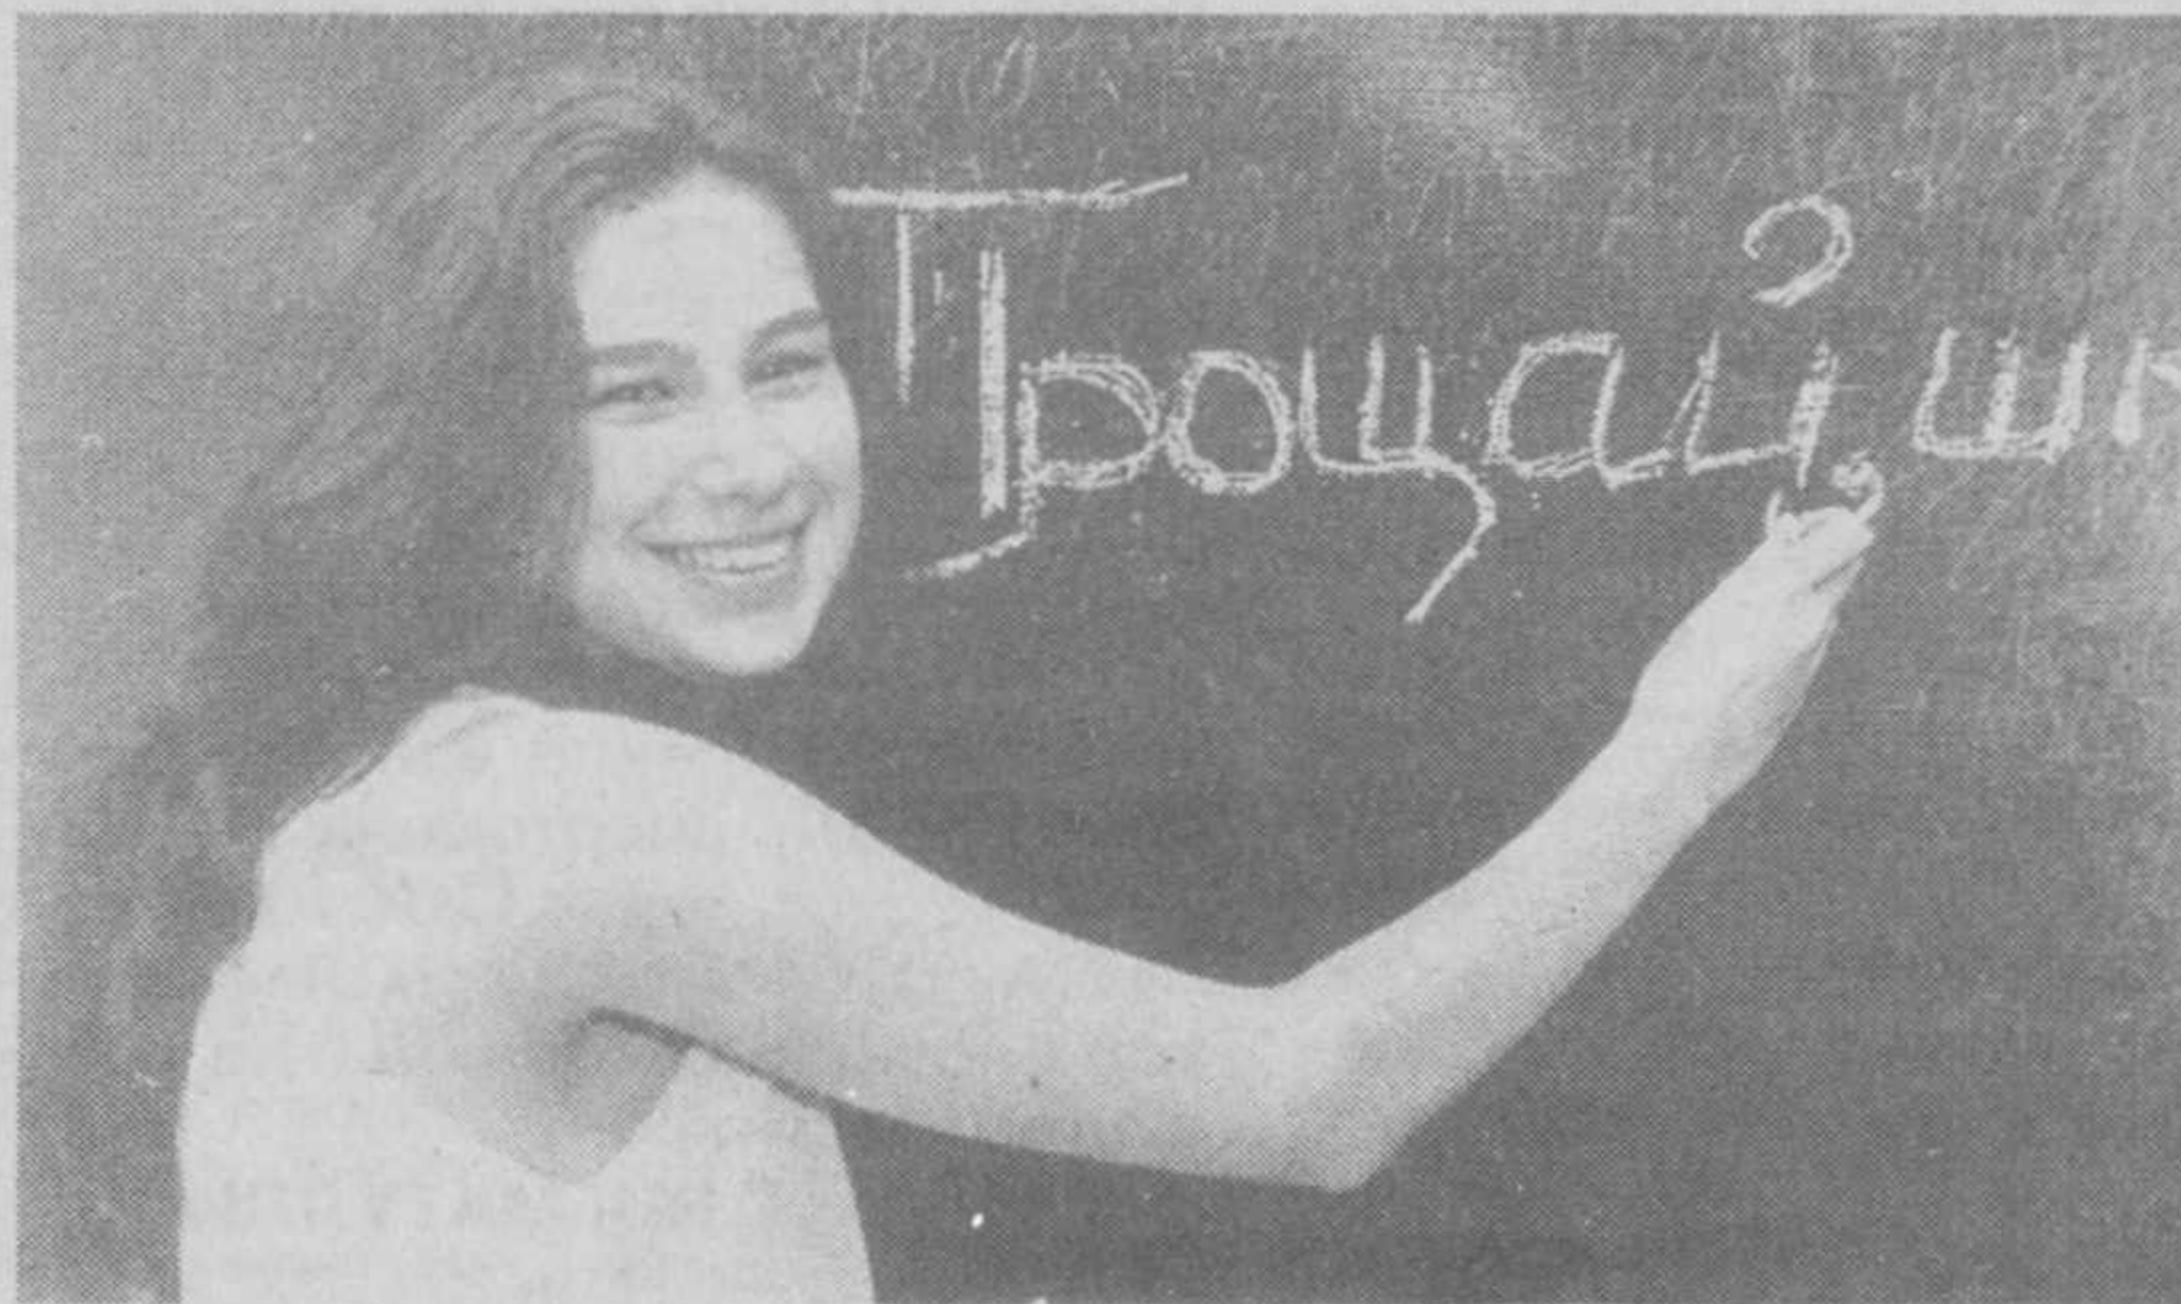 Прощай, шк